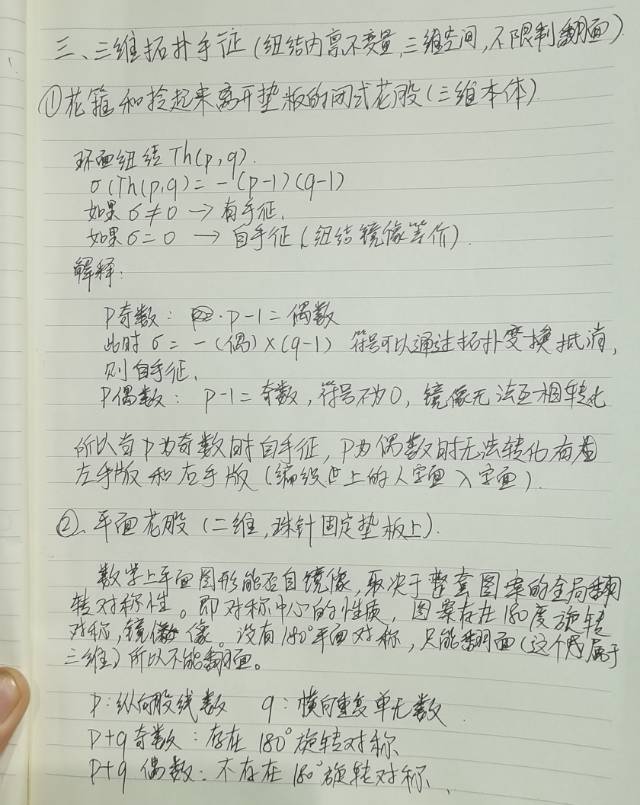 三、三维拓扑手征(纽结内禀不变量,三维空间,不限制翻面)
①花箍和拎起来离开垫板的闭式花股(三维本体)
环面纽结Th(p,q).
σ(Th(p,q)=-(p-1)(q-1)
如果σ≠0 → 有手征.
如果σ=0 → 自手征(纽结镜像等价).
解释:
P奇数: P-1=偶数
此时σ=-(偶)×(q-1) 符号可以通过拓扑变换抵消,
则自手征.
P偶数: P-1=奇数,符号不为0,镜像无法互相转化
所以当P为奇数时自手征,P为偶数时无法转化有着
左手版和右手版(编织上的人字面入字面).
②.平面花股(二维,珠针固定垫板上).
数学上平面图形能否自镜像,取决于整套图案的全局翻
转对称性。即对称中心的性质,图案存在180度旋转
对称,镜像。没有180°平面对称,只能翻面(这个属于
三维)所以不能翻面。
P:纵向股线数 q:横向重复单元数
P+q奇数:存在180°旋转对称
P+q偶数:不存在180°旋转对称.